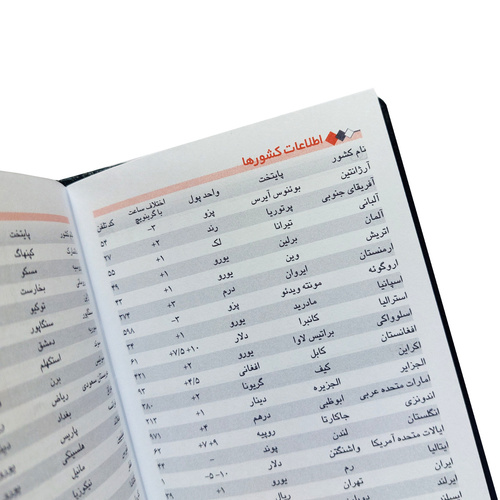 اطلاعات کشورها
نام کشور پایتخت واحد پول اختلاف ساعت با گرینویچ کد تلفن
آرژانتین بوئنوس آیرس پزو -۳ ۵۴
آفریقای جنوبی پرتوریا رند +۲ ۲۷
آلبانی تیرانا لک +۱ ۵۵
آلمان برلین یورو +۱
اتریش وین یورو +۱
ارمنستان ایروان درم ۳۷۴
اروگوئه مونته ویدئو پزو -۳ ۵۹۸
اسپانیا مادرید یورو +۱ ۳۴
استرالیا کانبرا دلار +۷/۵ +۱۰ ۶۱
اسلوواکی براتیس لاوا یورو +۱
افغانستان کابل افغانی +۴/۵ ۹۳
اکراین کیف گریونا +۲ ۳۸۰
الجزایر الجزیره دینار +۱ ۲۱۳
امارات متحده عربی ابوظبی درهم +۴ ۹۷۱
اندونزی جاکارتا روپیه +۷+۹ ۶۲
انگلستان لندن پوند - ۴۴
ایالات متحده آمریکا واشنگتن دلار -۵ -۱۰
ایتالیا رم یورو +۱
ایران تهران ریال
ایرلند
پایتخت
کپنهاگ
مسکو
بخارست
توکیو
سنگاپور
دمشق
استکهلم
برن
سعودی ریاض
بغداد
پاریس
هلسینکی
مانیل
نیکوزیا